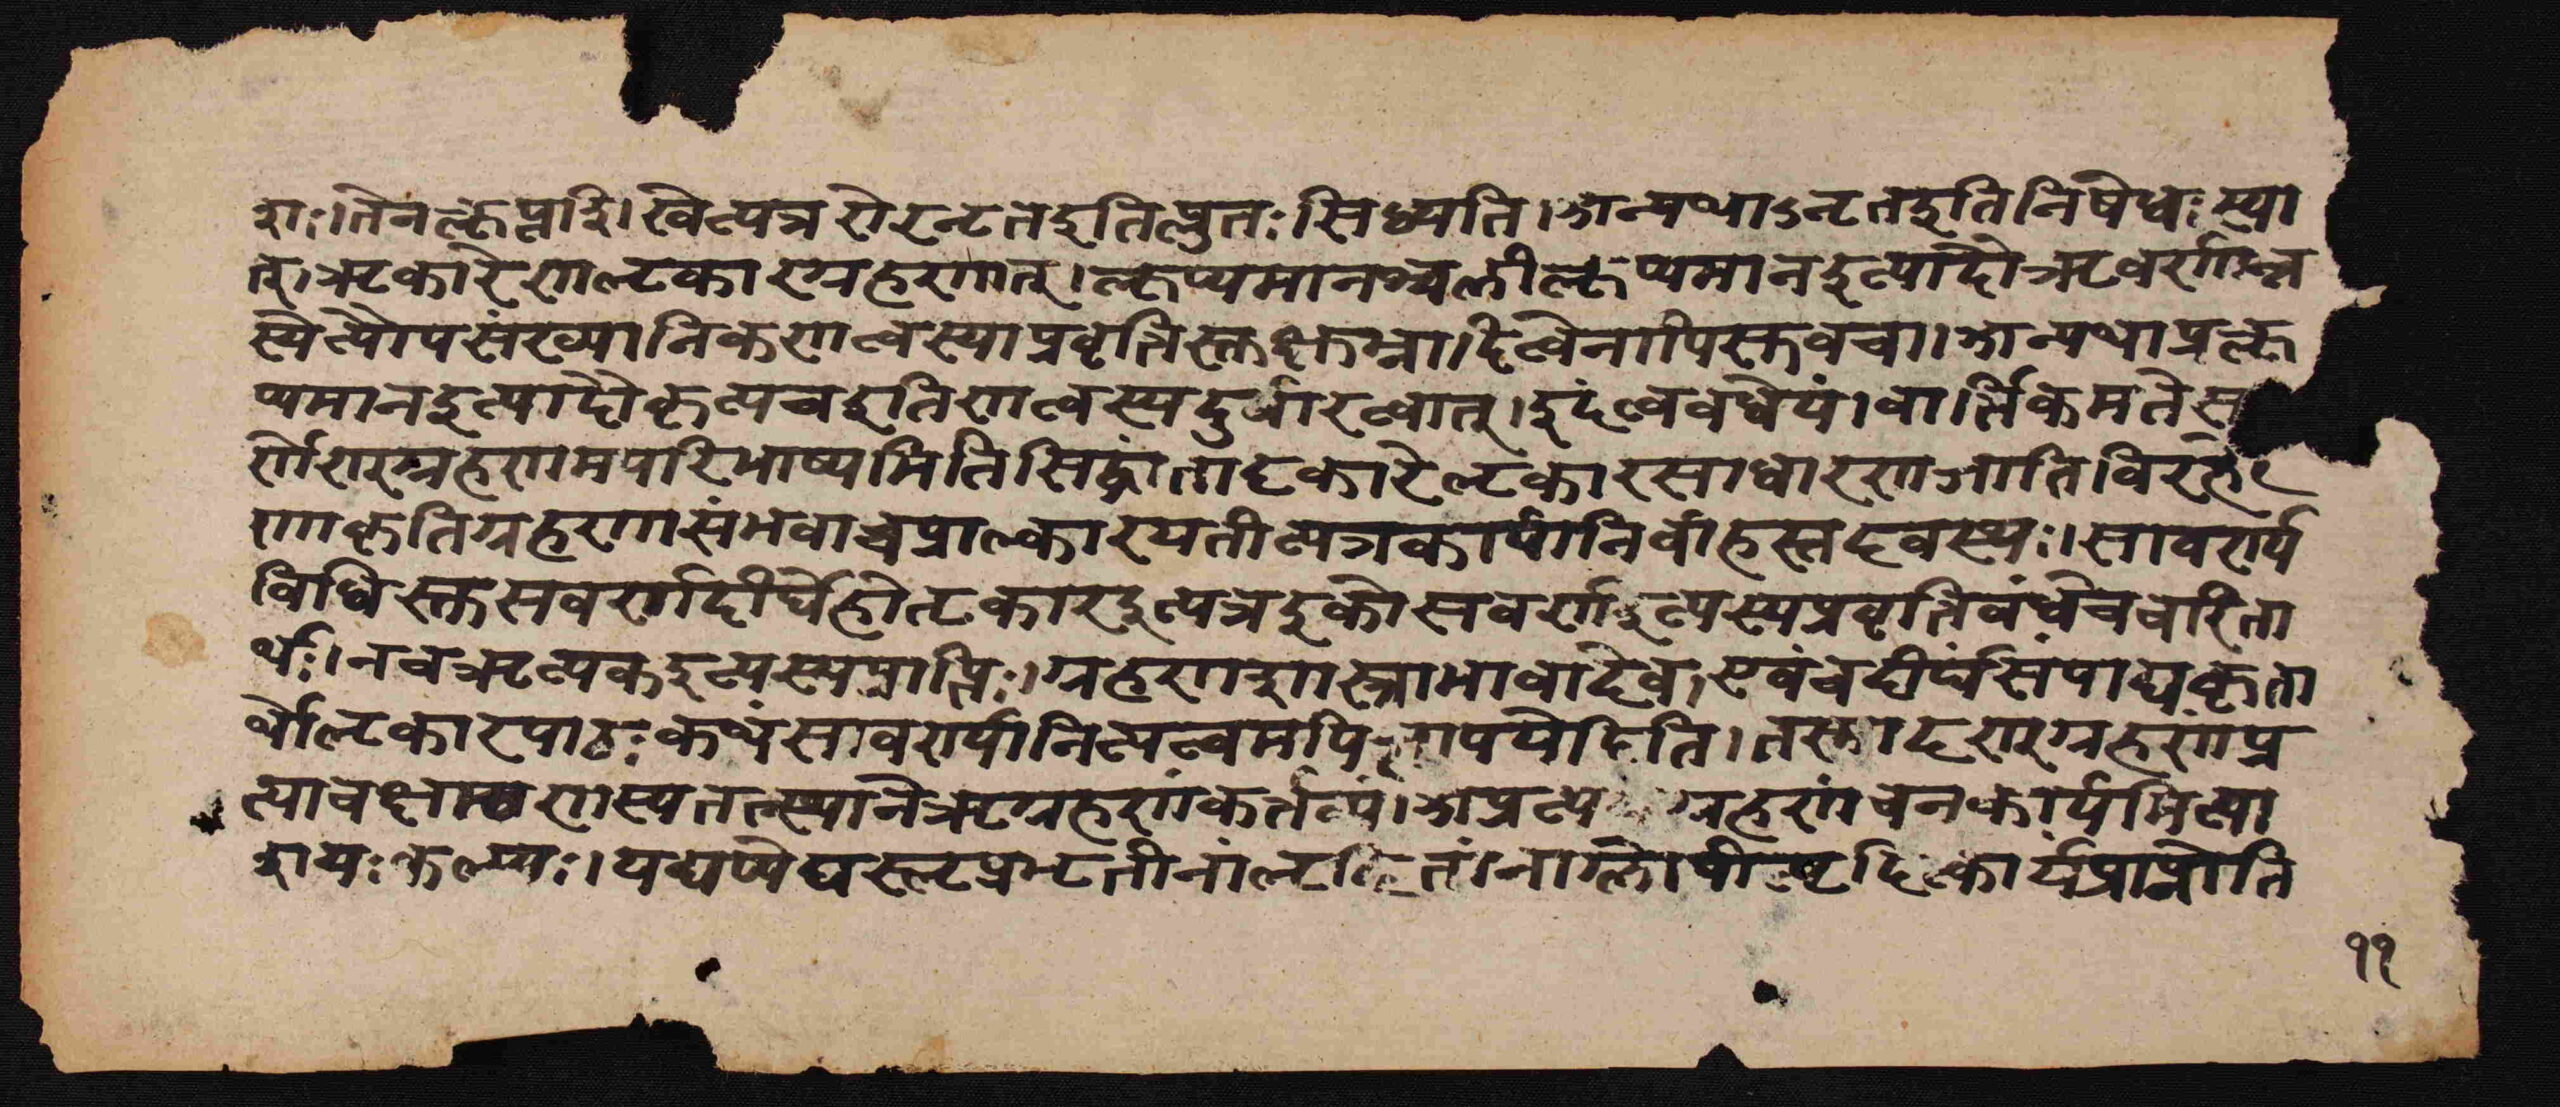 शः।तेनकॢप्तशि।खेत्यत्रगेरनृतइतिप्लुतःसिध्यति।अन्यथाऽनृतइतिनिषेधःस्या
त्।ऋकारेणऌकारग्रहणात्।कॢप्यमानश्चलीकॢप्यमानइत्यादौऋवर्णान्न
स्येत्यौपसंख्यानिकणत्वस्याप्रवृत्तिस्तु दित्वेनापिस्तवचा।अन्यथाप्रकॢ
प्यमानइत्यादौकृत्यचइतिणत्वस्यदुर्वारत्वात्।इदंत्ववधेयं।वार्तिकमतेस
र्णेऽण्ग्रहणमपरिभाष्यमितिसिद्धांताद्दकारेऌकारसाधारणजातिविरहे
णाकृतिग्रहणासंभवाच्चप्राल्कारयतीत्यत्रकार्यानिर्वाहस्तदवस्थः।सावर्ण्य
विधिस्तुसवर्णदीर्घेहोतृकारइत्यत्रइकोसवर्णइत्यस्यप्रवृत्तिबंधेचचरिता
र्थः।नचऋत्यकइत्यस्यप्राप्तिः।ग्रहणशास्त्राभावादेव।एवंचदीर्घसंपाद्यकृता
र्थेऌकारपाठःकथंसावर्ण्यानित्यत्वमपि पयेदिति।तस्मादण्ग्रहणंप्र
त्याचक्षाणस्यतत्स्थानेऋग्रहणंकर्तव्यं।अप्रत्य ग्रहणंचनकार्यमित्या
शयःकल्प्यः।यद्यप्येघसॢप्रभृतीनांऌदितांनाग्लोपीत्यृदित्कार्यंप्राप्नोति
११